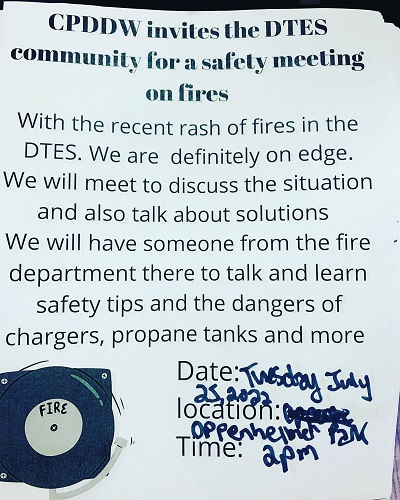 CPDDW invites the DTES
community for a safety meeting
on fires
With the recent rash of fires in the
DTES. We are definitely on edge.
We will meet to discuss the situation
and also talk about solutions
We will have someone from the fire
department there to talk and learn
safety tips and the dangers of
chargers, propane tanks and more
FIRE
Date: Tuesday July
25, 2022
location:
Oppenheimer Park
Time: 2pm